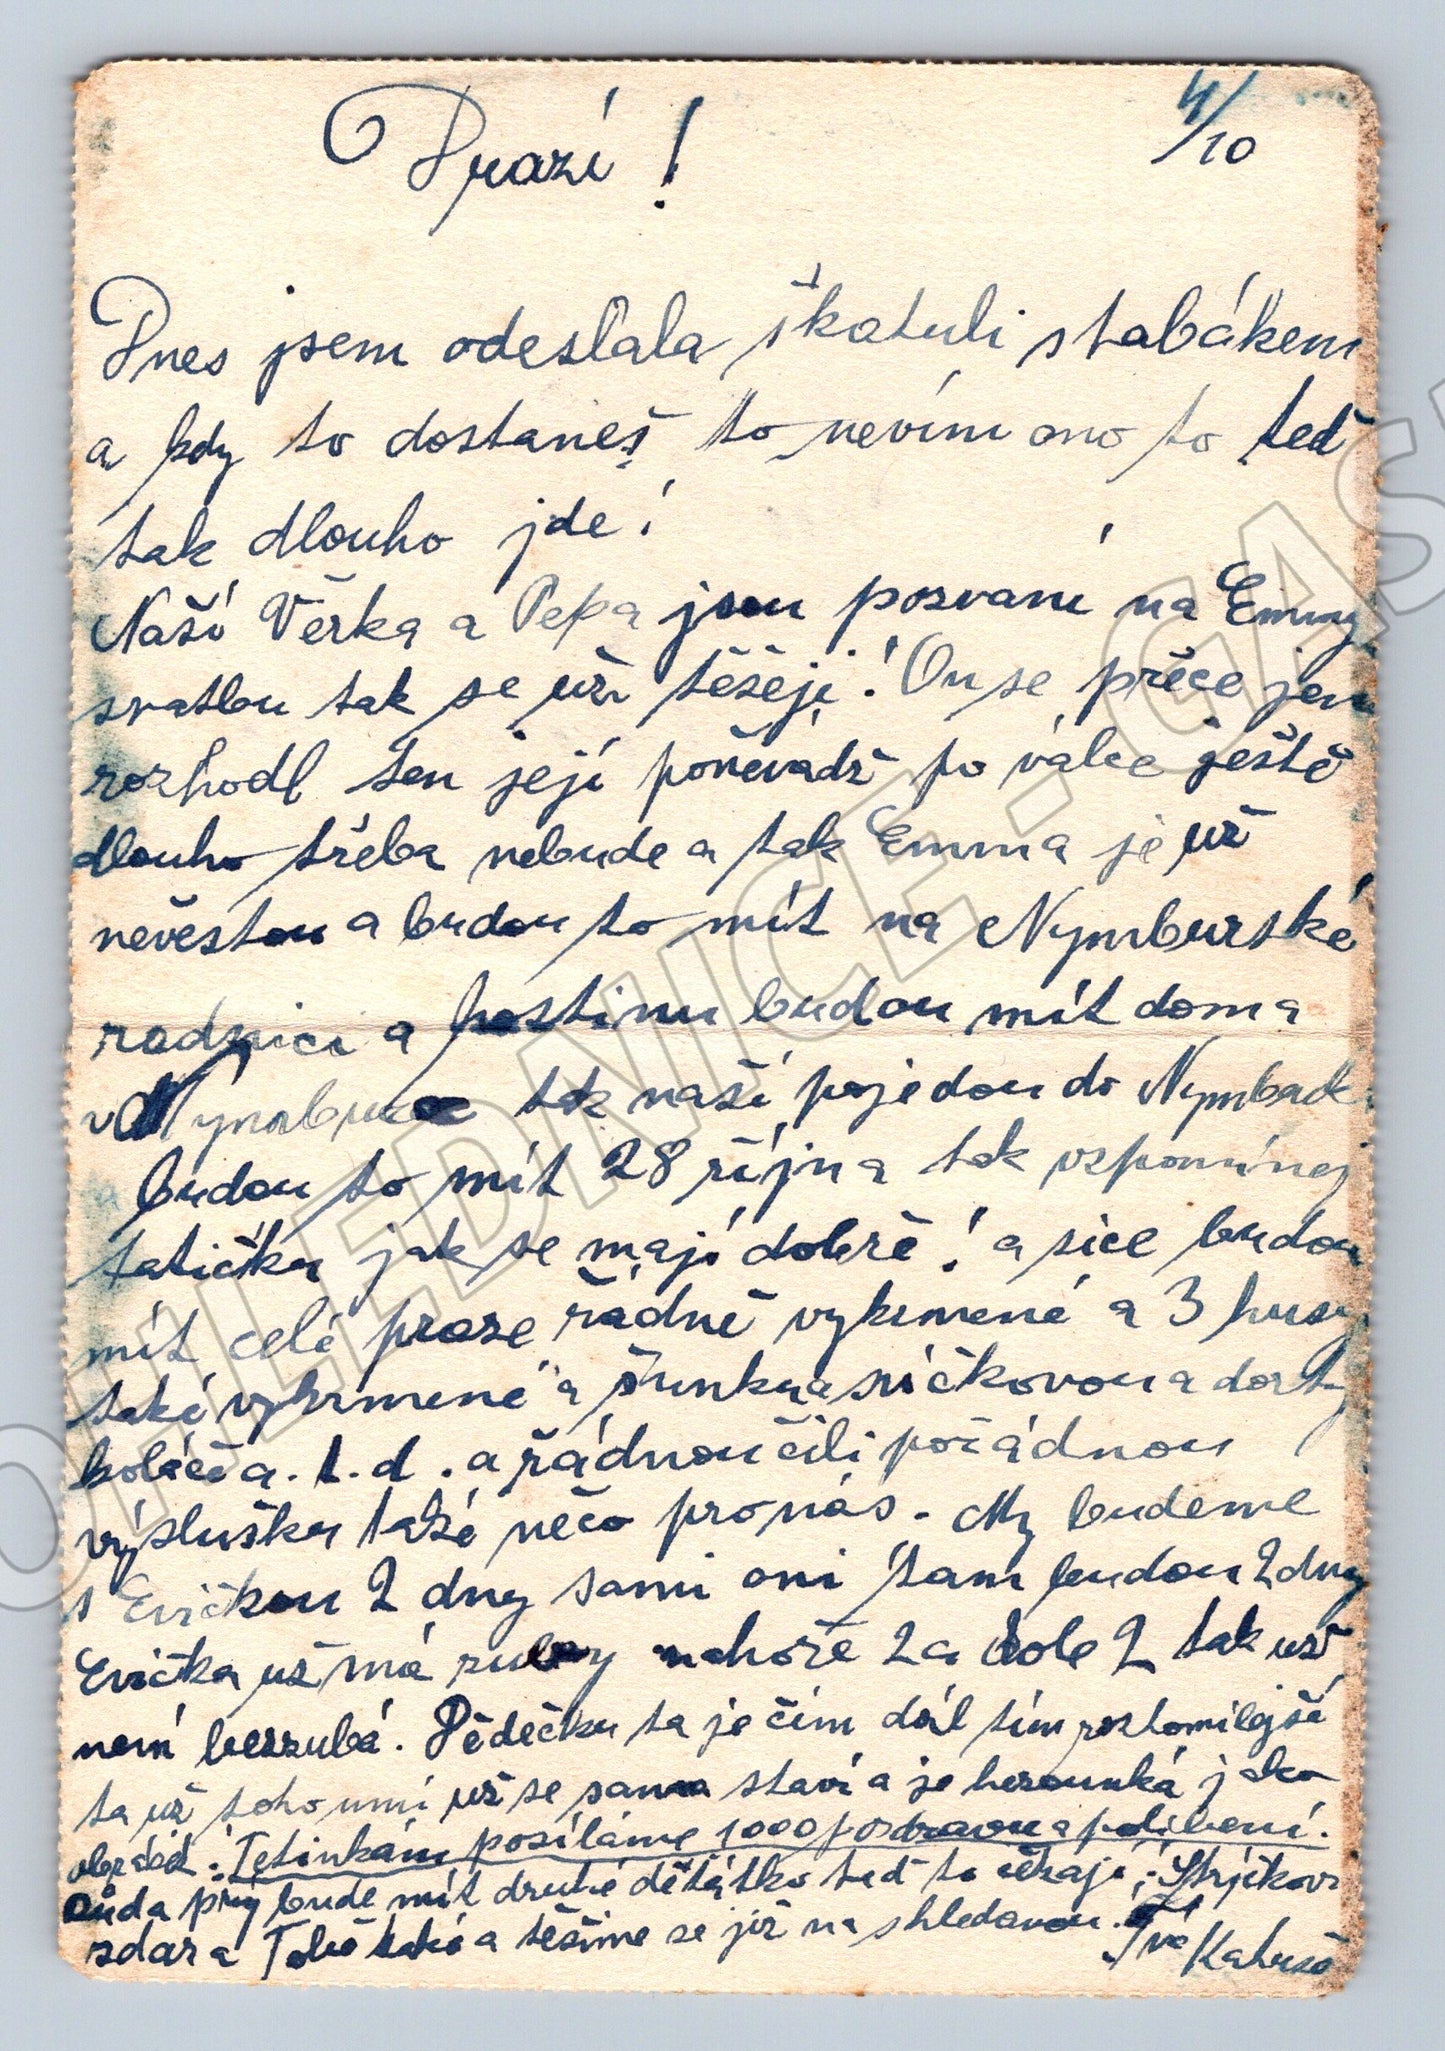 4/10
Drazí!
Dnes jsem odeslala škatuli s tabákem
a kdy to dostaneš to nevím ono to teď
tak dlouho jde!
Naší Věrka a Pepa jsou pozvaní na Emmy
svatbu tak se už těšejí! On se přece jen
rozhodl ten její poněvádž po válce ještě
dlouho třeba nebude a tak Emma je už
nevěstou a budou to mít na Nymburské
radznici a hostinu budou mít doma
v Nymburce tak naší pojedou do Nymburk
budou to mít 28 října tak vzpomínej
tatíčku jak se mají dobře! a sice budou
mít celé prase řádně vykrmené a 3 husy
také vykrmené a šunku a svíčkovou a dorty
koláče a.t.d. a řádnou čili pořádnou
výslušku také něco pro nás. My budeme
s Evičkou 2 dny sami oni tam budou 2 dny
Evička už má zuby nahoře 2 a dole 2 tak už
není bezzubá. Dědečku ta je čím dál tím roztomilejší
ta už toho umí už se sama staví a je herounká jako
obrázek. Tetinkám posíláme 1000 pozdravů a políbení.
Růda prý bude mít druhé děťátko teď to čekají! Strýčkovi
zdar a Tobě také a těšíme se již na shledanou. Tvá